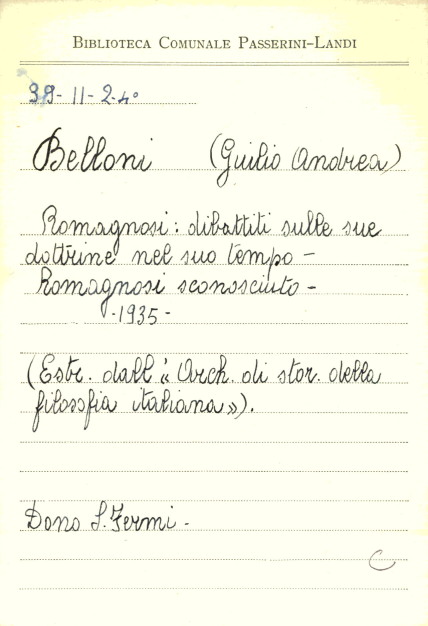 BIBLIOTECA COMUNALE PASSERINI-LANDI
39-II-24°
Belloni (Giulio Andrea)
Romagnosi: dibattiti sulle sue
dottrine nel suo tempo -
Romagnosi sconosciuto -
-1935-
(Estr. dall'« Arch. di stor. della
filosofia italiana»).
Dono S. Fermi -
C